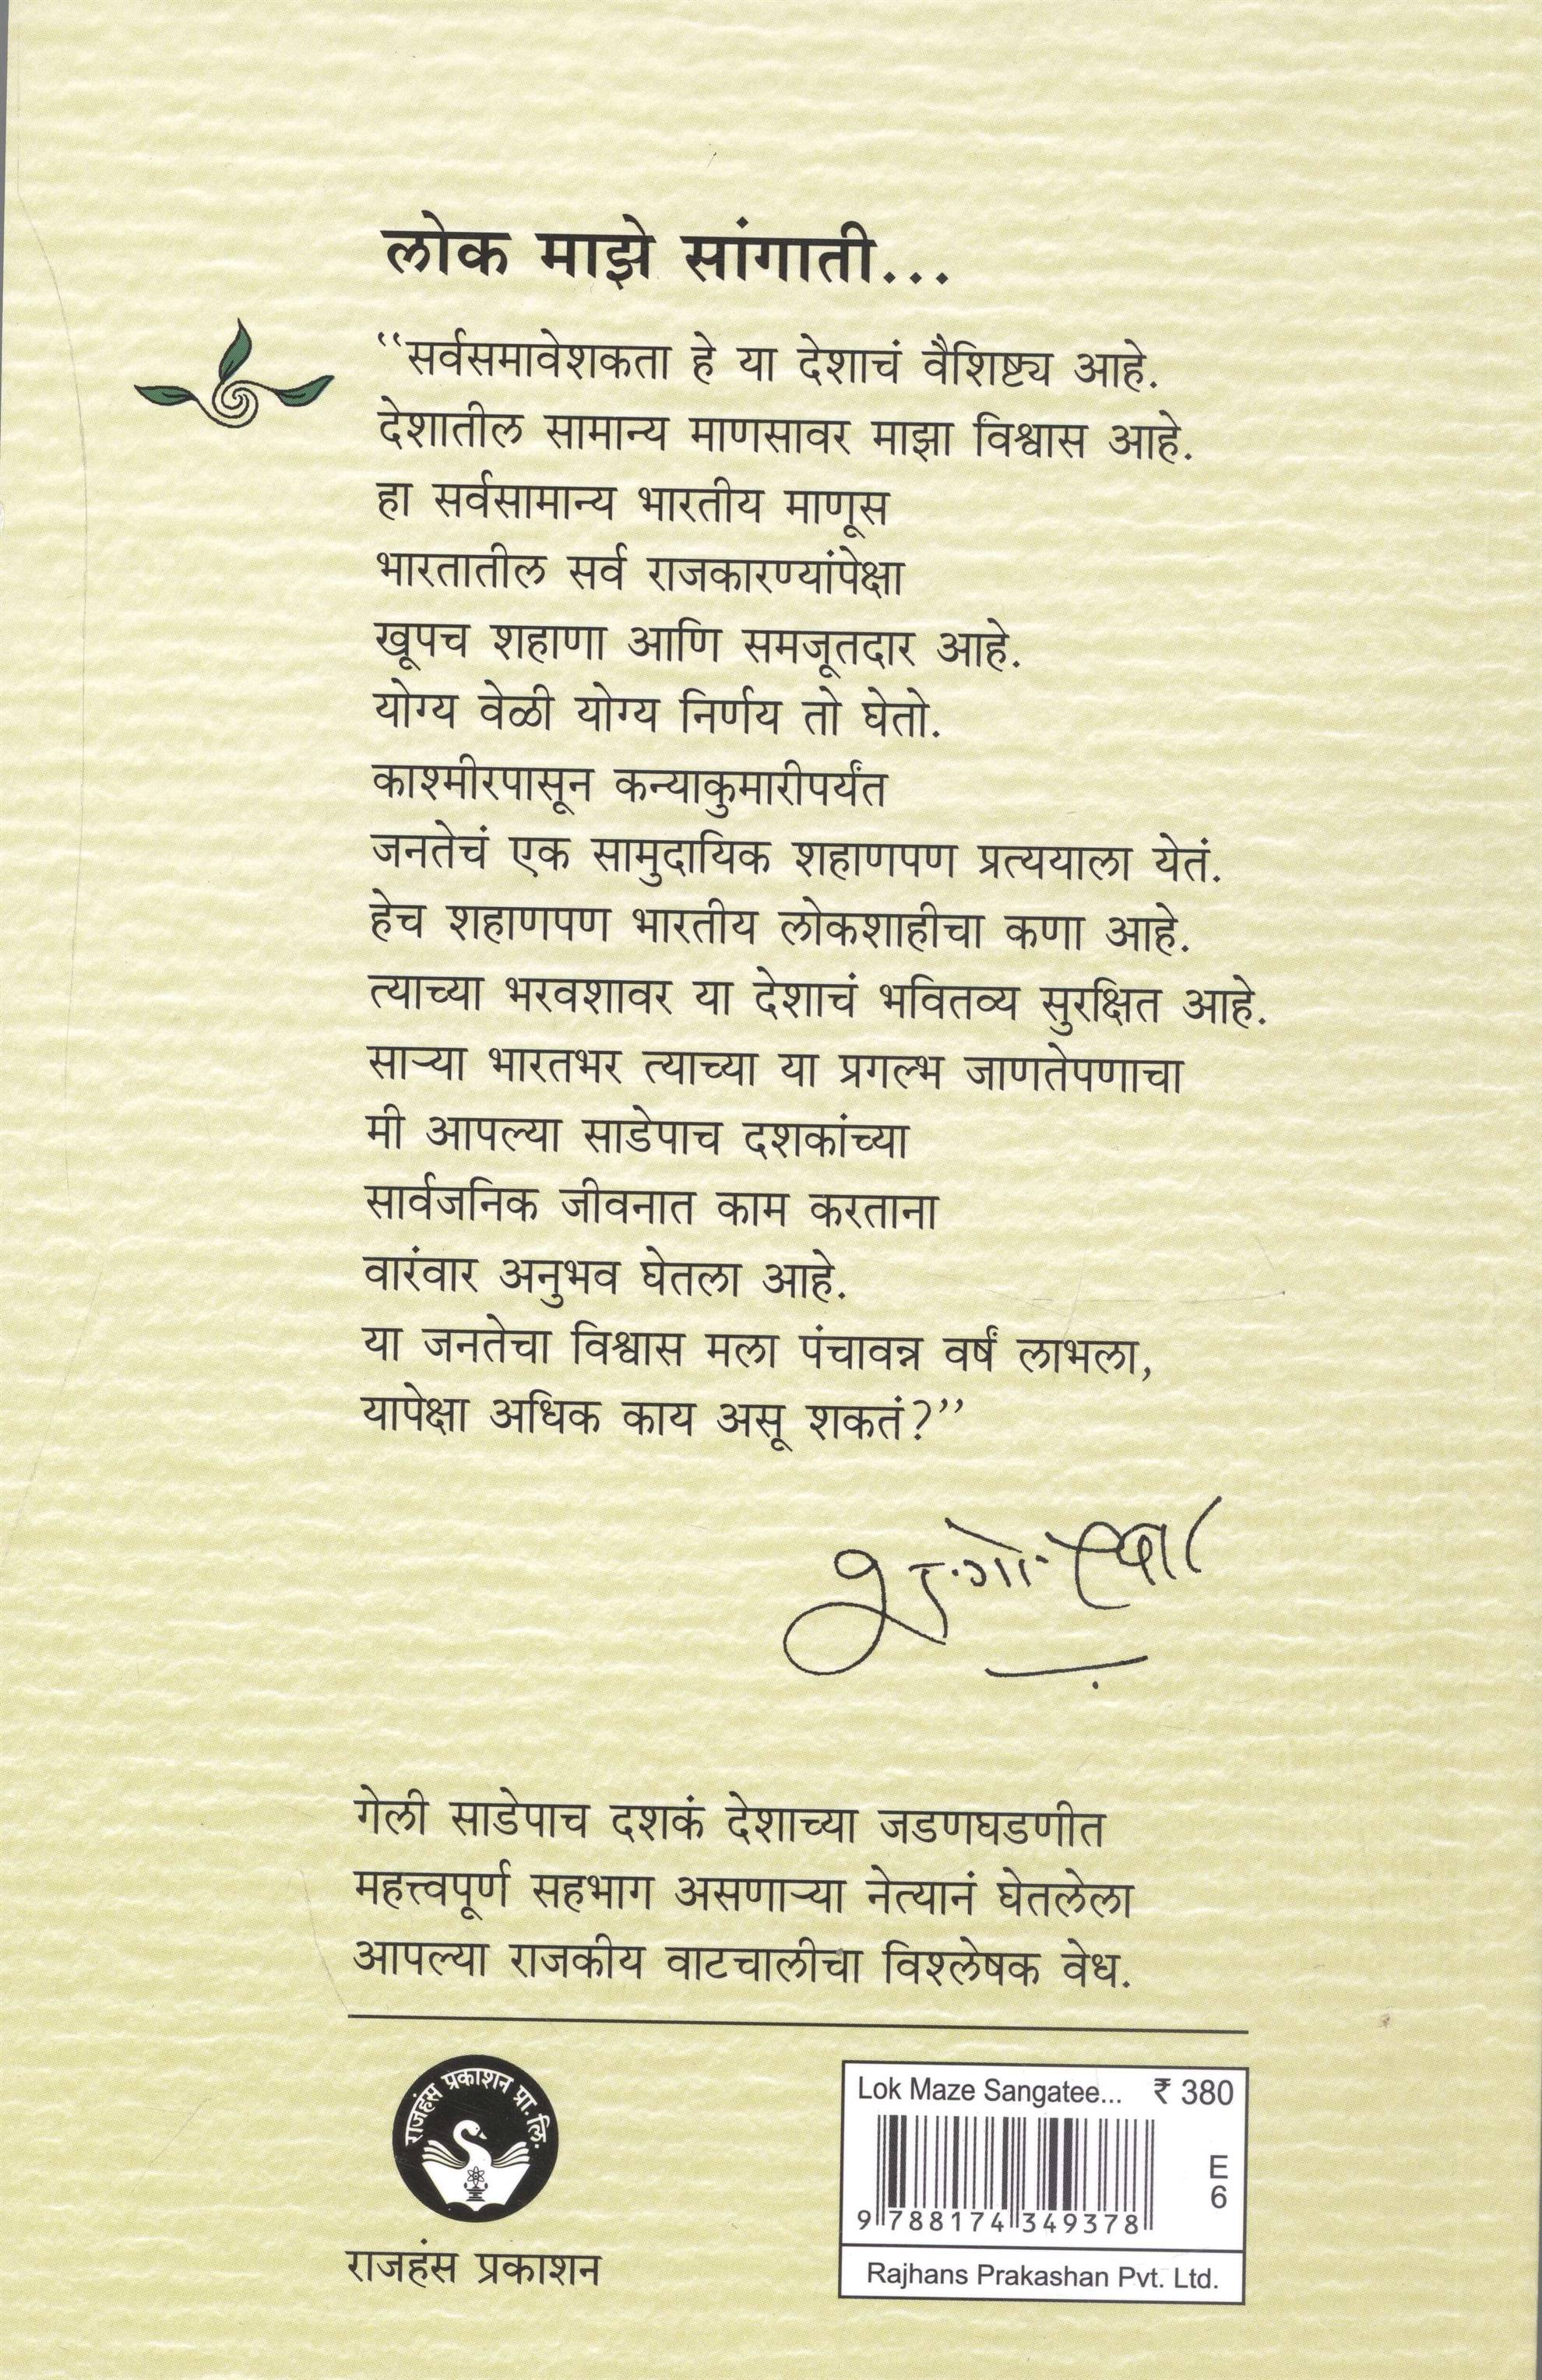 लोक माझे सांगाती...
“सर्वसमावेशकता हे या देशाचं वैशिष्ट्य आहे.
देशातील सामान्य माणसावर माझा विश्वास आहे.
हा सर्वसामान्य भारतीय माणूस
भारतातील सर्व राजकारण्यांपेक्षा
खूपच शहाणा आणि समजूतदार आहे.
योग्य वेळी योग्य निर्णय तो घेतो.
काश्मीरपासून कन्याकुमारीपर्यंत
जनतेचं एक सामुदायिक शहाणपण प्रत्ययाला येतं.
हेच शहाणपण भारतीय लोकशाहीचा कणा आहे.
त्याच्या भरवशावर या देशाचं भवितव्य सुरक्षित आहे.
साऱ्या भारतभर त्याच्या या प्रगल्भ जाणतेपणाचा
मी आपल्या साडेपाच दशकांच्या
सार्वजनिक जीवनात काम करताना
वारंवार अनुभव घेतला आहे.
या जनतेचा विश्वास मला पंचावन्न वर्षं लाभला,
यापेक्षा अधिक काय असू शकतं?”
गेली साडेपाच दशकं देशाच्या जडणघडणीत
महत्त्वपूर्ण सहभाग असणाऱ्या नेत्यानं घेतलेला
आपल्या राजकीय वाटचालीचा विश्लेषक वेध.
राजहंस प्रकाशन प्रा. लि.
राजहंस प्रकाशन
Lok Maze Sangatee... ₹ 380
E
6
9 788174 349378
Rajhans Prakashan Pvt. Ltd.